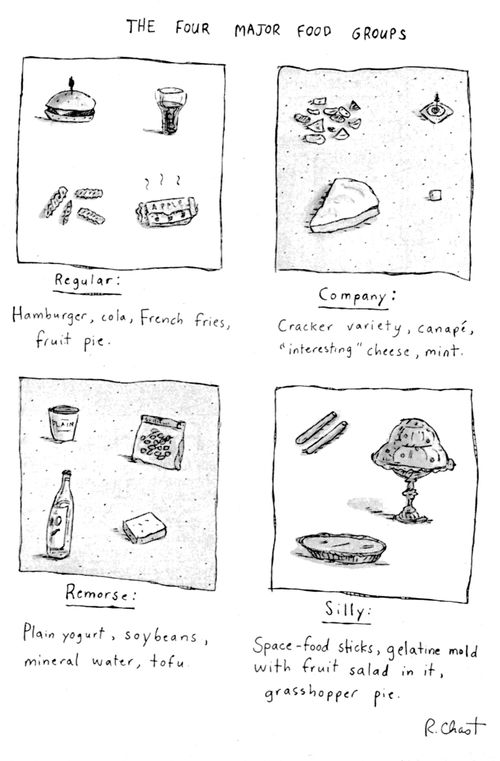 THE FOUR MAJOR FOOD GROUPS
APPLE
Regular:
Hamburger, cola, French fries,
fruit pie.
Company:
Cracker variety, canapé,
"interesting" cheese, mint.
PLAIN
Remorse:
Plain yogurt, soybeans,
mineral water, tofu.
Silly:
Space-food sticks, gelatine mold
with fruit salad in it,
grasshopper pie.
R. Chast